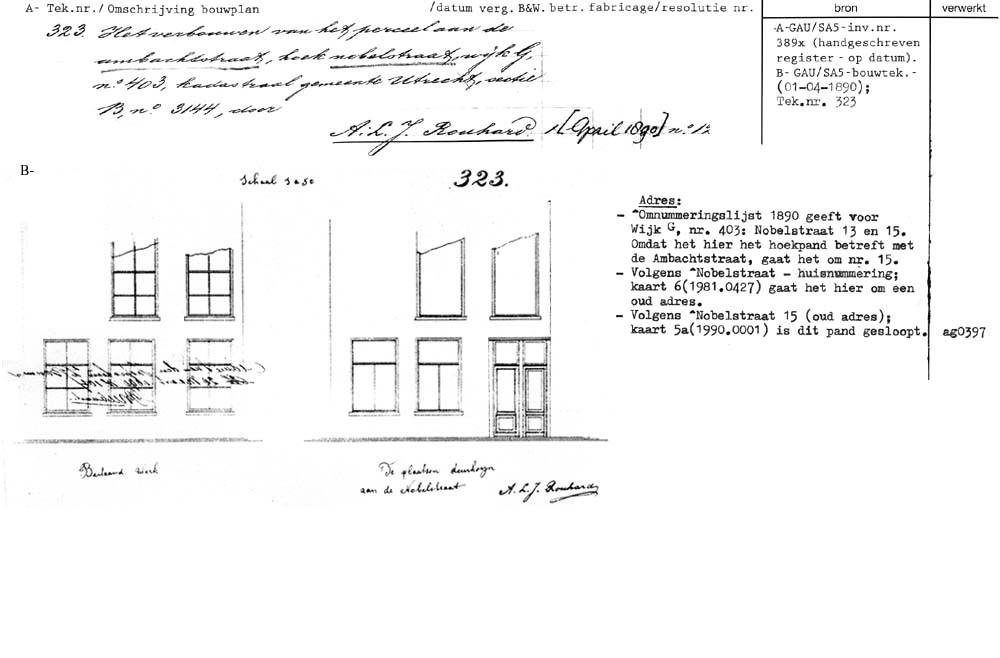 A- Tek.nr./Omschrijving bouwplan /datum verg. B&W. betr. fabricage/resolutie nr. bron verwerkt
323. Het verbouwen van het perceel aan de
ambachtstraat, hoek nobelstraat, wijk G,
nº 403, kadastraal gemeente Utrecht, sectie
B, nº 3144, door
A. L. J. Rouhard 1 [April 1890] nº 12
A-GAU/SA5-inv.nr.
389x (handgeschreven
register - op datum).
B- GAU/SA5-bouwtek.-
(01-04-1890);
Tek.nr. 323
B-
Schaal 1 a 50
323.
Bestaand Werk
Te plaatsen deurkozyn
aan de Nobelstraat
A. L. J. Rouhard
Adres:
- ^Omnummeringslijst 1890 geeft voor
Wijk G, nr. 403: Nobelstraat 13 en 15.
Omdat het hier het hoekpand betreft met
de Ambachtstraat, gaat het om nr. 15.
- Volgens ^Nobelstraat - huisnummering;
kaart 6(1981.0427) gaat het hier om een
oud adres.
- Volgens ^Nobelstraat 15 (oud adres);
kaart 5a(1990.0001) is dit pand gesloopt.
ag0397